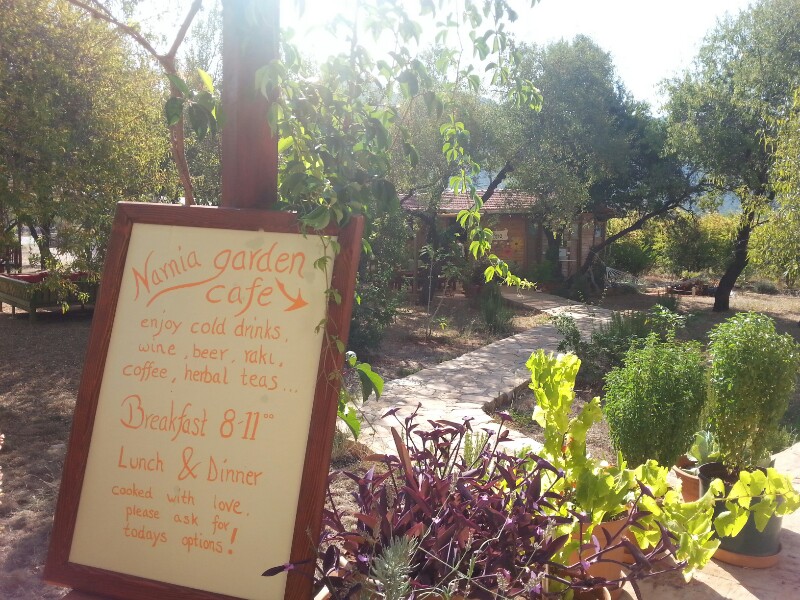 Narnia garden
cafe
enjoy cold drinks,
wine, beer, raki,
coffee, herbal teas...
Breakfast 8-11⁰⁰
Lunch & Dinner
cooked with love.
please ask for
todays options!